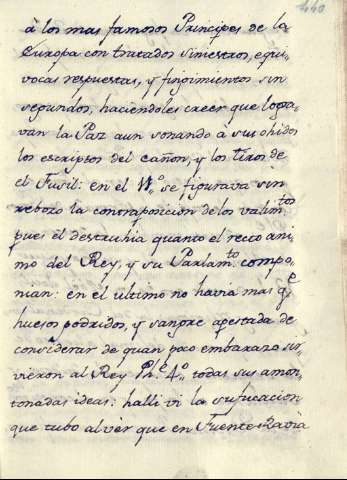 440
à los mas famosos Principes de la
Europa con tratados siniestros, equi-
vocas respuestas, y fingimientos sin
segundos, haciendoles creer que logra-
van la Paz aun sonando à sus ohidos
los escriptos del cañon, y los tiros de
el Fusil: en el V.º se figurava sin
rebozo la contraposicion de los valim.tos
pues él destruhia quanto el recto ani-
mo del Rey, y su Parlam.to compo-
nian: en el ultimo no havia mas q.e
huesos podridos, y sangre apestada de
considerar de quan poco embarazo sir-
vieron al Rey Ph.e 4.º todas sus amon-
tonadas ideas: halli vi la sufucacion
que tubo al vèr que en Fuente Ravia